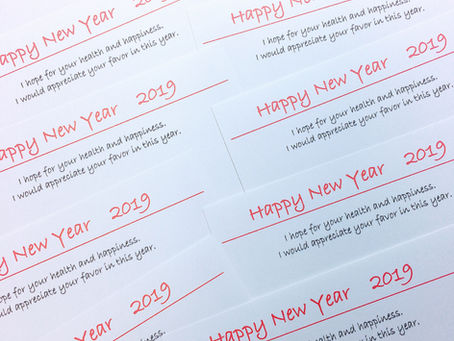 Happy New Year 2019
I hope for your health and happiness.
I would appreciate your favor in this year.
Happy New Year 2019
I hope for your health and happiness.
I would appreciate your favor in this year.
Happy New Year 2019
I hope for your health and happiness.
I would appreciate your favor in this year.
Year 2019
Happy New Year
I hope for your health and happiness.
I would appreciate your favor in this year.
Happy New Year 2019
I hope for your health and happiness.
I would appreciate your favor in this year.
Happy New Year 2019
I hope for your health and happiness.
I would appreciate your favor in this year.
Happy New Year 2019
I hope for your health and happiness.
I would appreciate your favor in this year.